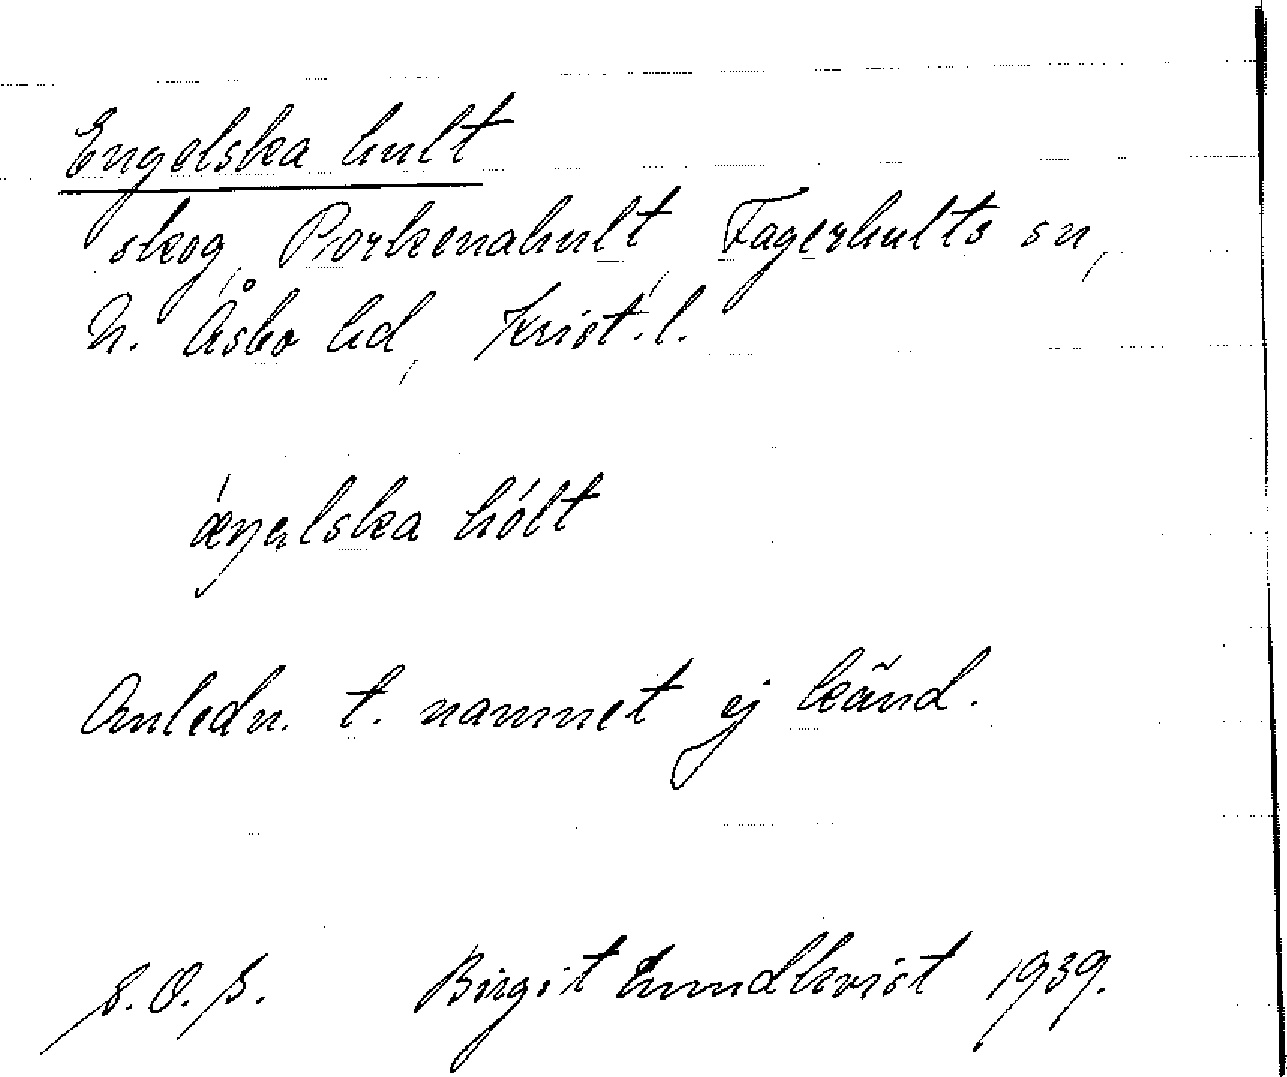 Engelska hult
skog, Porkenahult, Fagerhults sn,
N. Åsbo hd, Krist. l.
æŋəlska hólt
Anledn. t. namnet ej känd.
S.O.S. Birgit Lundkvist 1939.